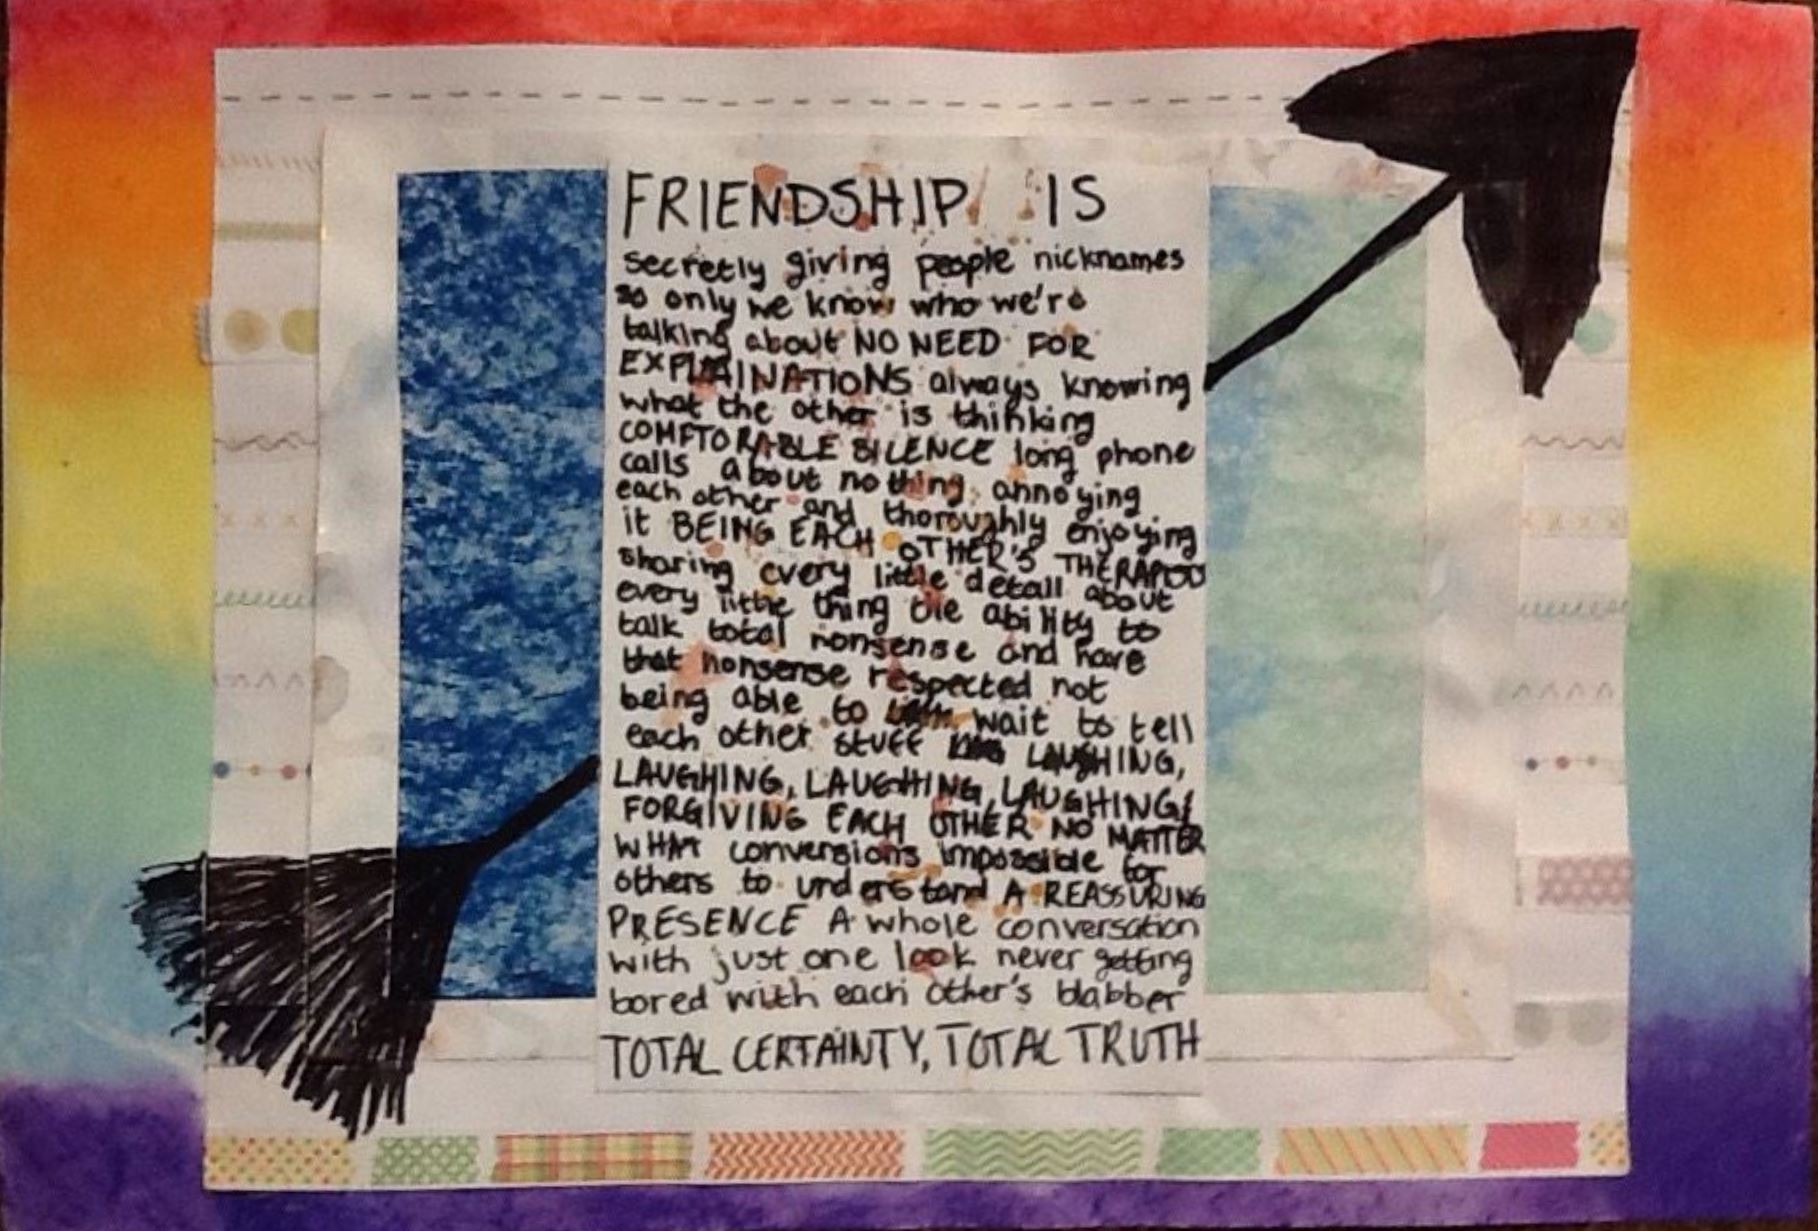 FRIENDSHIP IS
secretly giving people nicknames
so only we know who we're
talking about NO NEED FOR
EXPLAINATIONS always knowing
what the other is thinking
COMFTORABLE SILENCE long phone
calls about nothing annoying
each other and thoroughly enjoying
it BEING EACH OTHER'S
sharing every little detail about
every little thing the ability to
talk total nonsense and have
that nonsense respected not
being able to wait to tell
each other stuff LAUGHING,
LAUGHING, LAUGHING, LAUGHING,
FORGIVING EACH OTHER NO MATTER
WHAT conversions impossible for
others to understand A REASSURING
PRESENCE A whole conversation
with just one look never getting
bored with each other's blabber
TOTAL CERTAINTY, TOTAL TRUTH